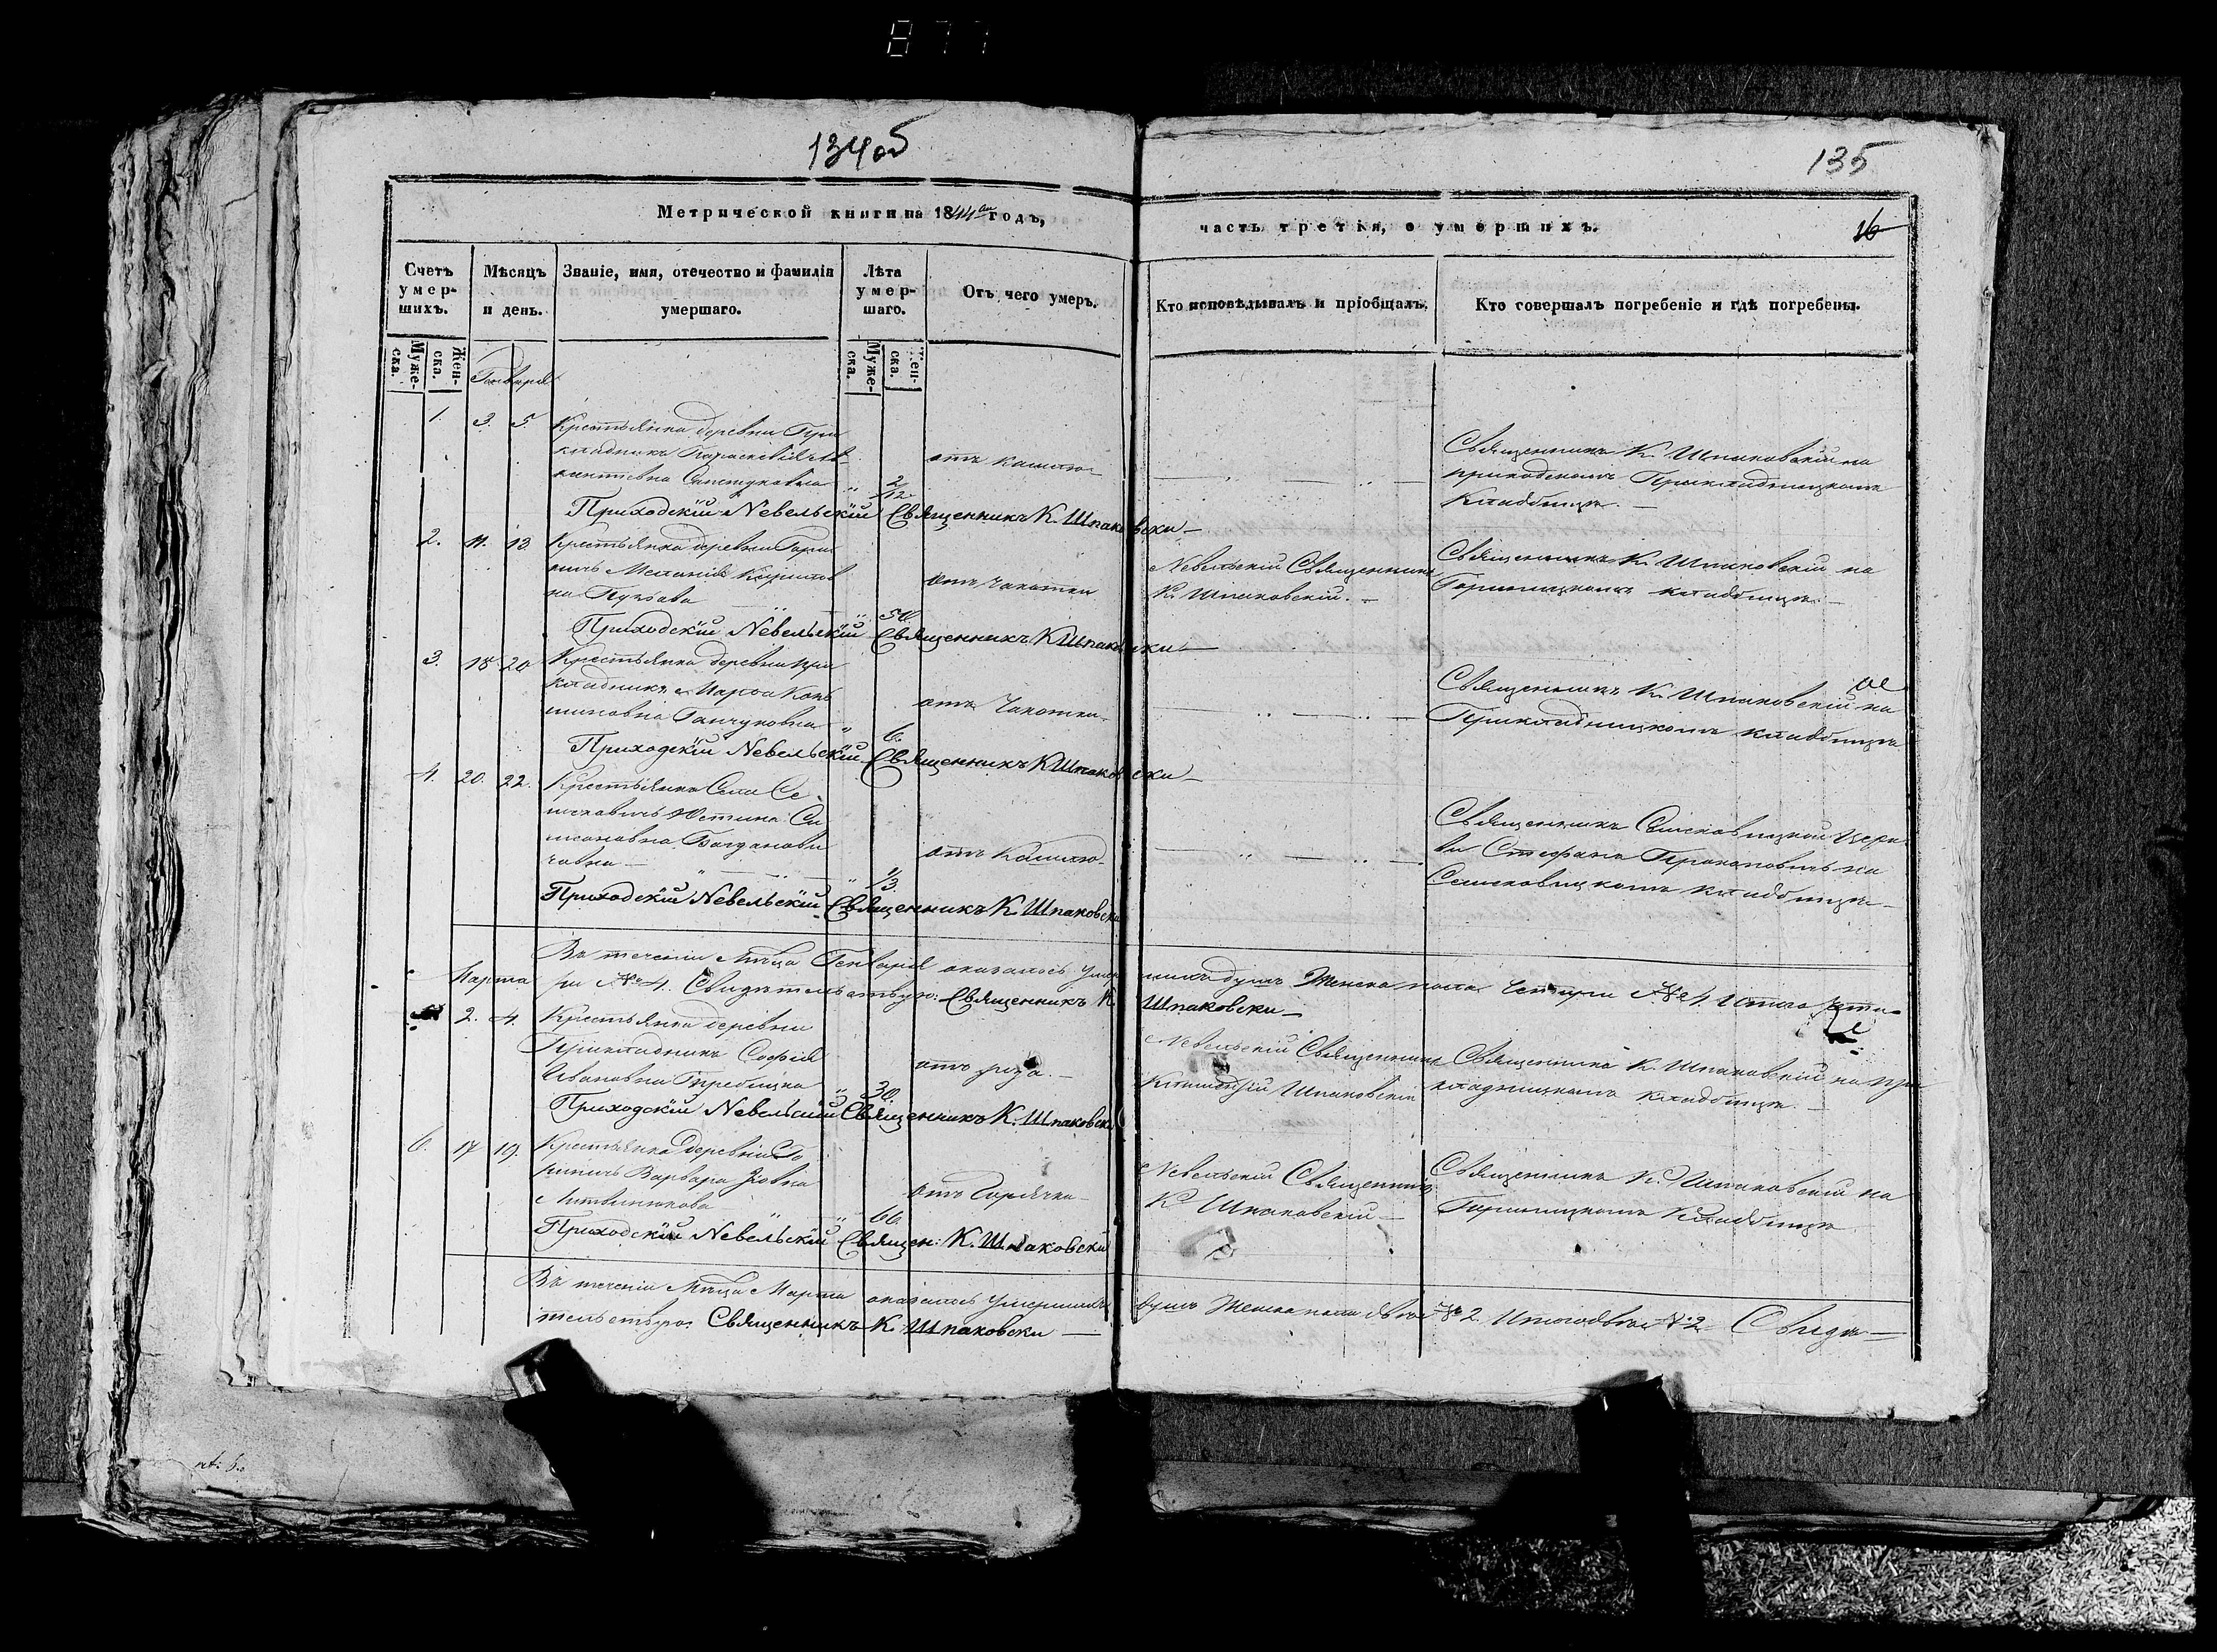 877
134об
135
Метрической книги на 1844ый годъ,
часть третія, о умершихъ.
16
Счетъ умер-шихъ.
Мѣсяцъ и день.
Званіе, имя, отечество и фамилія умершаго.
Лѣта умер-шаго.
Отъ чего умеръ.
Кто исповѣдывалъ и пріобщалъ.
Кто совершалъ погребеніе и гдѣ погребены.
Муже-ска.
Жен-ска.
Муже-ска.
Жен-ска.
Генваря
1. 3. 5. Крестьянка деревни При
кладникъ Параскевія
2/12
отъ кашлю
Священникъ К. Шпаковскій на
приходскомъ Прикладницкомъ
Кладбищѣ. —
Приходскій Невельскій Священникъ К. Шпаковски —
2. 11. 13. Крестьянка деревни Гори
ничь Меланія Кирилов
на
50
отъ Чахотки
Невельскій Священникъ
К. Шпаковскій. —
Священникъ К. Шпаковскій на
Гориницкомъ кладбищѣ. —
Приходскій Невельскій Священникъ К Шпаковски —
3. 18 20 Крестьянка деревни При
кладникъ Марфа
6.
отъ Чахотки
Священникъ К. Шпаковскій на
Прикладницкомъ кладбищѣ
Приходскій Невельскій Священникъ К Шпаковски —
4. 20. 22. Крестьянка Села Се
миховичь Юстина Си
меоновна Богданови
човна —
1/3
отъ Кашлю
Священникъ Семиховицкой Церк
ви Стефанъ Прокоповичь на
Семиховицкомъ кладбищѣ —
Приходскій Невельскій Священникъ К. Шпаковски
Въ теченіи Мѣсца Генваря оказалось умер шихъ душъ Женска пола Четыри № 4. Итого Чети
ри № 4. Свидѣтельствую: Священникъ К. Шпаковски —
Марта
2. 4. Крестьянка деревни
Прикладникъ Софія
Ивановна
30.
отъ —
Невельскій Священникъ
Шпаковскій
Священникъ К. Шпаковскій на При
кладницкомъ кладбищѣ. —
Приходскій Невельскій Священникъ К. Шпаковски
6. 17 19. Крестьянка деревни Го
риничь Варвара
Литвинюкова
60
отъ Горячки —
Невельскій Священникъ
К. Шпаковскій —
Священникъ К. Шпаковскій на
Гориницкомъ Кладбищѣ
Приходскій Невельскій Священ: К. Шпаковски
Въ теченіи Мѣсца Марта оказалось Умершихъ душъ Женска пола двѣ № 2. Итого двѣ № 2 Свидѣ —
тельствую. Священникъ К. Шпаковски —